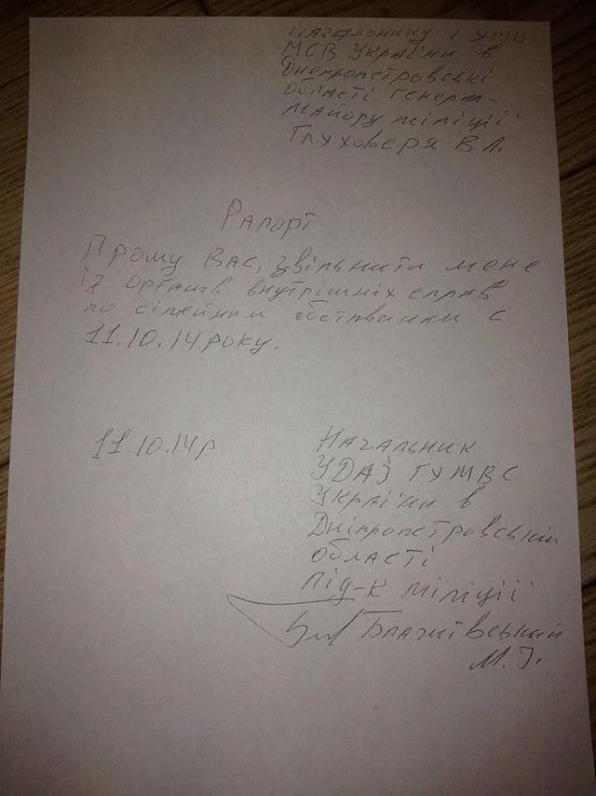 Начальнику ГУМВ
МСВ України в
Днепропетровські
області генерал-
майору міліції
Глуховеря В.А.
Рапорт
Прошу Вас, звільнити мене
із органів внутрішніх справ
по сімейним обставинам с
11.10.14 року.
11.10.14р
Начальник
УДАЇ ГУМВС
України в
Дніпропетровській
області
під-к міліції
М.І.